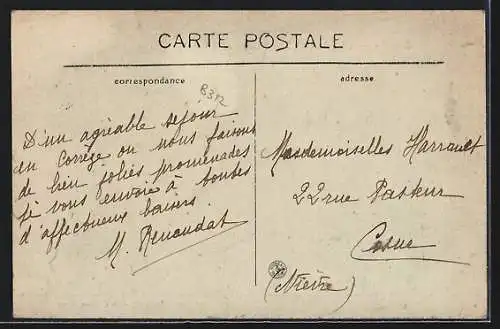 CARTE POSTALE
correspondance
adresse
8312
D'un agréable séjour
en Corrège ou nous faisons
de bien jolies promenades
je vous envoie à toutes
d'affectueux baisers.
M. Renaudat
Mesdemoiselles Harrault
22 rue Pasteur
Cosne
(Nièvre)